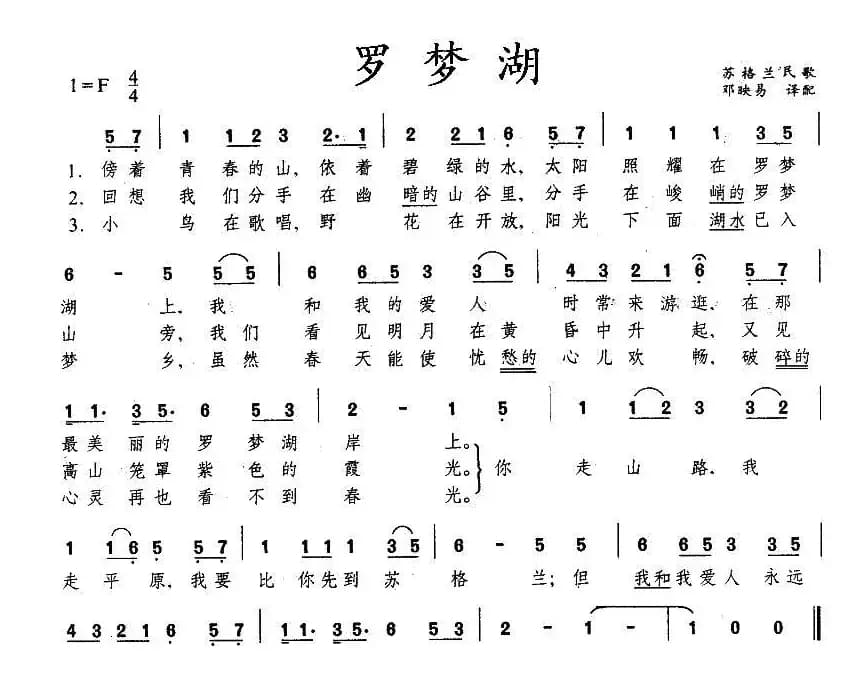 罗梦湖
1=F 4/4
苏格兰民歌
邓映易 译配
5 7 | 1 1 2 3 2· 1 | 2 2 1 6 5 7 | 1 1 1 3 5 |
1. 傍着 青春的山,依着 碧绿的水,太阳 照耀在罗梦
2. 回想 我们分手在幽 暗的山谷里,分手 在峻峭的罗梦
3. 小 鸟在歌唱,野 花在开放,阳光 下面湖水已入
6 - 5 5 5 | 6 6 5 3 3 5 | 4 3 2 1 6 5 7 |
湖 上,我 和我的爱人 时常来游逛,在那
山 旁,我们 看见明月在黄 昏中升起,又见
梦 乡,虽然 春天能使忧愁的 心儿欢畅,破碎的
1 1· 3 5· 6 5 3 | 2 - 1 5 | 1 1 2 3 3 2 |
最美丽的罗梦湖岸 上。
高山笼罩紫色的霞 光。你 走山路,我
心灵再也看不到春 光。
1 1 6 5 5 7 | 1 1 1 1 3 5 | 6 - 5 5 | 6 6 5 3 3 5 |
走平原,我要 比你先到苏 格 兰;但 我和我爱人永远
4 3 2 1 6 5 7 | 1 1· 3 5· 6 5 3 | 2 - 1 - | 1 0 0 ‖